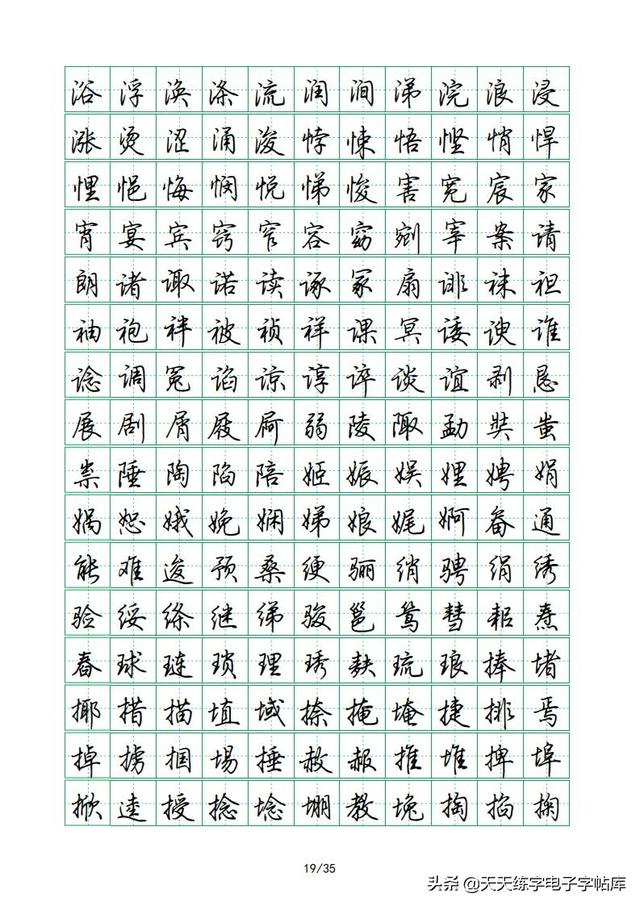 浴浮涣涤流润涧涕浣浪浸
涨烫涩涌浚悖悚悟悭悄悍
悝悒悔悯悦悌悛害宽宸家
宵宴宾窍窄容窈剜宰案请
朗诸诹诺读诼冢扇诽袜袒
袖袍袢被祯祥课冥诿谀谁
谂调冤谄谅谆谇谈谊剥恳
展剧屑屐屙弱陵陬勐奘蚩
祟陲陶陷陪姬娠娱娌娉娟
娲恕娥娩娴娣娘娓婀畚通
能难逡预桑绠骊绡骋绢绣
验绥绦继绨骏邕鸶彗耜焘
舂球琏琐理琇麸琉琅捧堵
揶措描埴域捺掩埯捷排焉
掉掳掴埸捶赦赧推堆捭埠
掀逵授捻埝堋教堍掏掐掬
19/35
头条 @天天练字电子字帖库